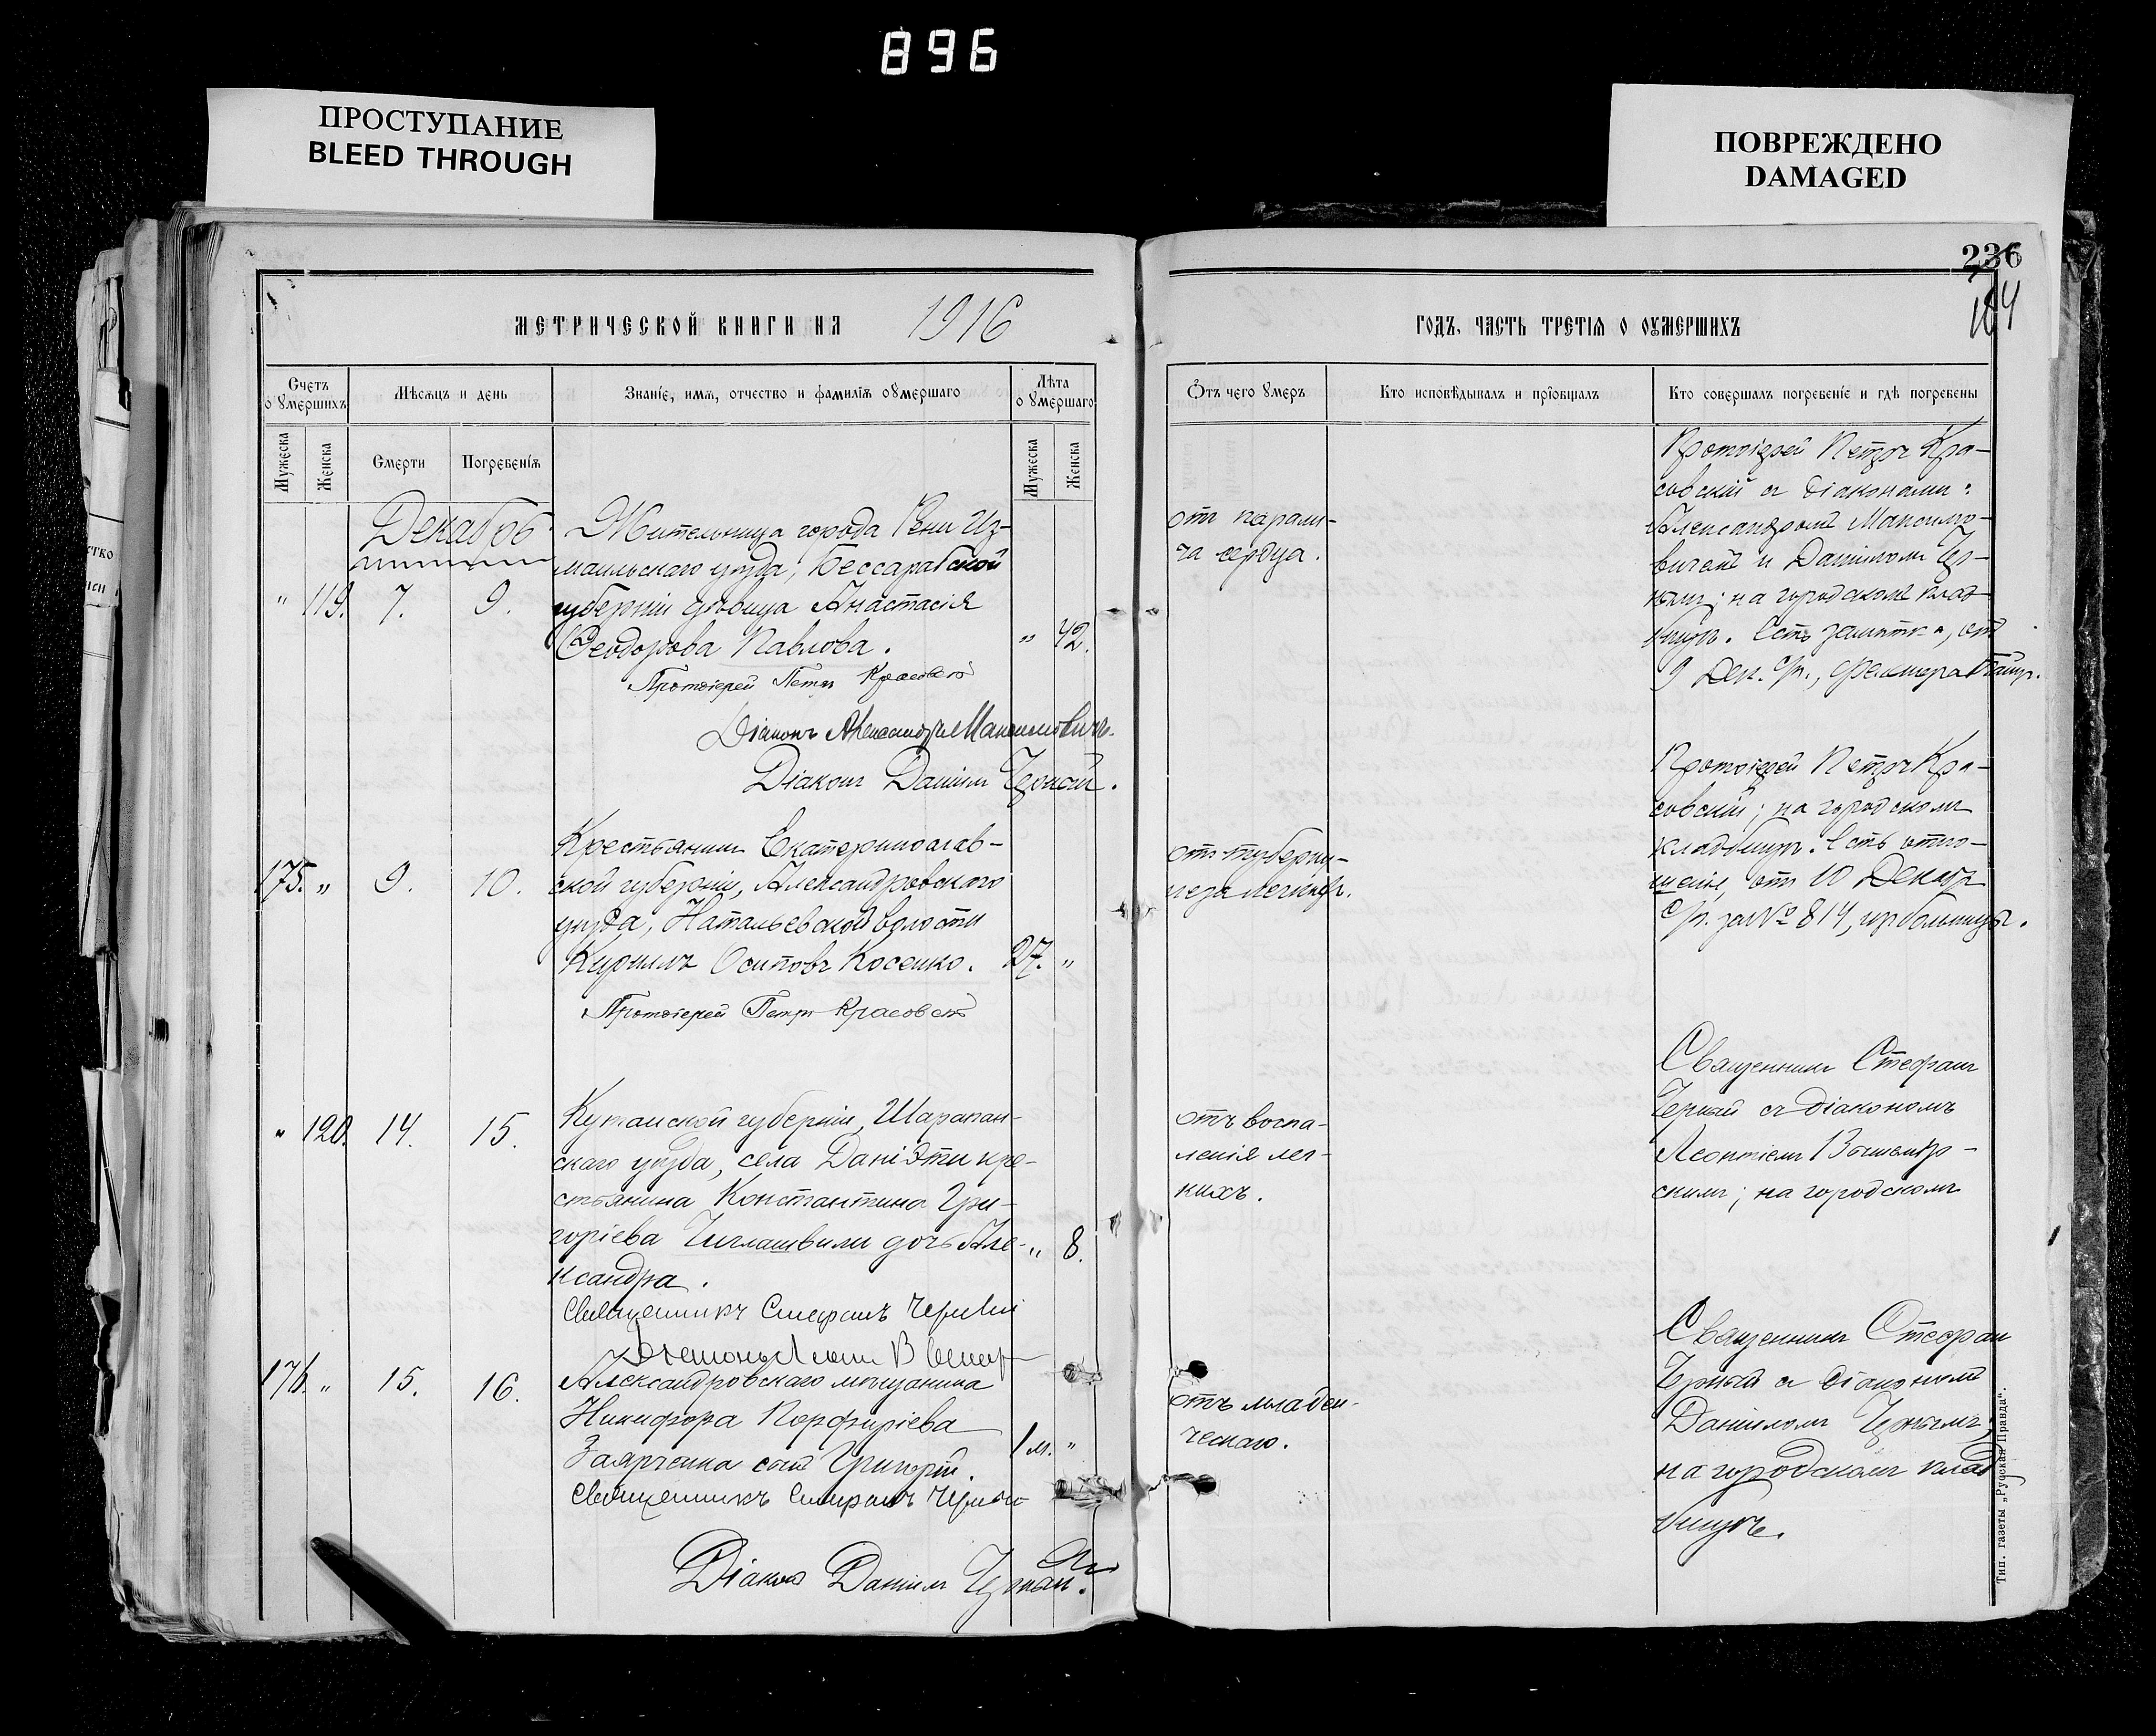 896
ПРОСТУПАНИЕ
BLEED THROUGH
ПОВРЕЖДЕНО
DAMAGED
236
164
МЕТРИЧЕСКОЙ КНИГИ НА 1916
ГОДЪ, ЧАСТЬ ТРЕТІѦ О ОУМЕРШИХЪ
Счетъ оумершихъ
Мѣсяцъ и день
Званіе, имѧ, отчество и фамиліѧ оумершаго
Лѣта оумершаго
Мужеска
Женска
Смерти
Погребеніѧ
Мужеска
Женска
Ѿтъ чего умеръ
Кто исповѣдывалъ и пріобщалъ
Кто совершалъ погребеніе и гдѣ погребены
Декабрь
" 119. 7. 9.
Жительница города Рени Из-
маильскаго уѣзда, Бессарабской
губерніи дѣвица Анастасія
Ѳеодорова Павлова. " 42.
Протоіерей Петръ Красовскій
Діаконъ Александръ Максимовичъ.
Діаконъ Даніилъ Черный.
отъ парали-
ча сердца.
Протоіерей Петръ Кра-
совскій съ діаконами:
Александромъ Максимо-
вичемъ и Даніиломъ Чер-
нымъ; на городскомъ клад-
бищѣ. Есть замѣтка, отъ
9 Дек. с/г., фельдшера
175. " 9. 10.
Крестьянинъ Екатеринослав-
ской губерніи, Александровскаго
уѣзда, Натальевской волости
Кириллъ Осиповъ Косенко. 27. "
Протоіерей Петръ Красовскій
отъ туберку-
леза легкихъ.
Протоіерей Петръ Кра-
совскій; на городскомъ
кладбищѣ. Есть отно-
шеніе, отъ 10 Декабр
с/г. за № 814, изъ больницы.
" 120. 14. 15.
Кутаиской губерніи, Шарапан-
скаго уѣзда, села Даніэти кре-
стьянина Константина Гри-
горіева Чиглашвили дочь Але- " 8.
ксандра.
Священникъ Стефанъ Черный
отъ воспа-
ленія лег-
кихъ.
Священникъ Стефанъ
Черный съ діакономъ
Леонтіемъ
скимъ; на городскомъ
176. " 15. 16.
Александровскаго мѣщанина
Никифора Порфиріева
Заярченка сынъ Григорій. 1 м. "
Священникъ Стефанъ Черный
Діаконъ Даніилъ Черный.
отъ младен-
ческаго.
Священникъ Стефанъ
Черный съ діакономъ
Даніиломъ Чернымъ;
на городскомъ клад
бищѣ.
Тип. газеты „Русская Правда“.